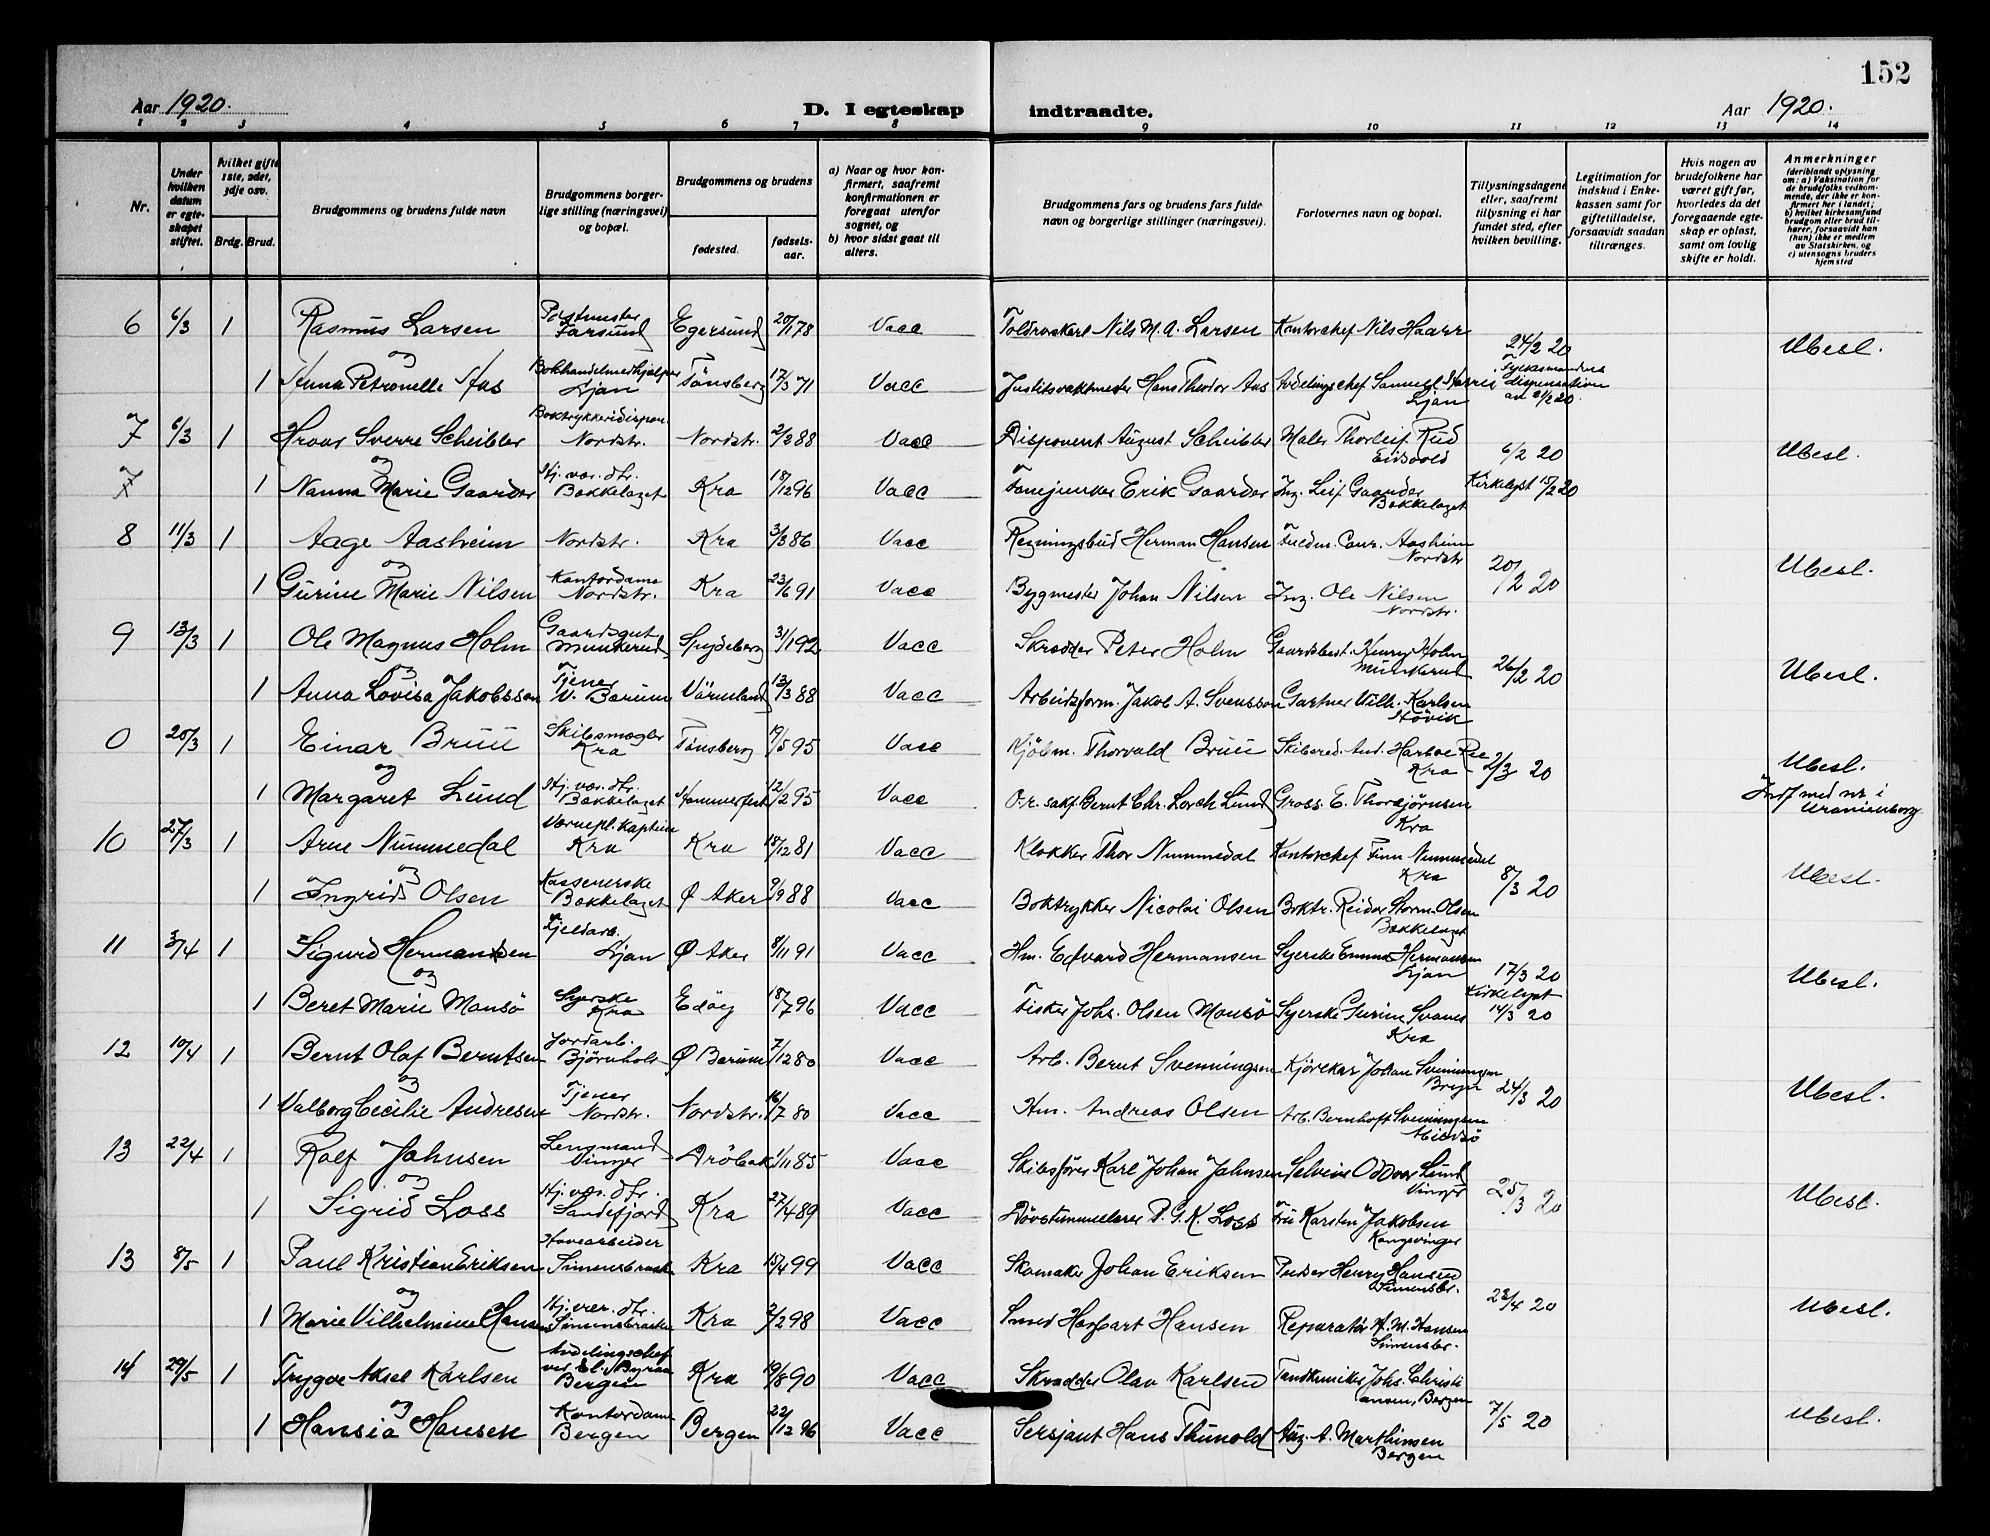 152
Aar 1920. D. I egteskap indtraadte. Aar 1920.
1 2 3 4 5 6 7 8 9 10 11 12 13 14
Nr.
Under hvilken datum er egteskapet stiftet.
Hvilket gifte 1ste, 2det, 3dje osv.
Brdg. Brud.
Brudgommens og brudens fulde navn
Brudgommens borgerlige stilling (næringsvei) og bopæl.
Brudgommens og brudens
fødested. fødselsaar.
a) Naar og hvor konfirmert, saafremt konfirmationen er foregaat utenfor sognet, og
b) hvor sidst gaat til alters.
Brudgommens fars og brudens fars fulde navn og borgerlige stillinger (næringsvei).
Forlovernes navn og bopæl.
Tillysningsdagene eller, saafremt tillysning ei har fundet sted, efter hvilken bevilling.
Legitimation for indskud i Enkekassen samt for giftetilladelse, forsaavidt saadan tiltrænges.
Hvis nogen av brudefolkene har været gift før, hvorledes da det foregaaende egteskap er opløst, samt om lovlig skifte er holdt.
Anmerkninger (deriblandt oplysning om: a) Vaksination for de brudefolks vedkommende, der ikke er konfirmert her i landet; b) hvilket kirkesamfund brudgom eller brud tilhører, forsaavidt han (hun) ikke er medlem av Statskirken, og c) utensogns bruders hjemsted
6 6/3 1 Rasmus Larsen Postmester Farsund Egersund 20/1 78 Vacc Nils M. A. Larsen Kontorchef Nils Haarr 24/2 20 Ubesl.
og
1 Anna Petronelle Aas Bokhandelmedhjelper Ljan Tønsberg 17/3 71 Vacc Hans Theodor Aas Avdelingschef Samuel Harris Ljan Fylksmandens dispensation av 21/2 20.
7 6/3 1 Hroar Sverre Scheibler Boktrykkeridispon. Nordstr. Nordstr. 2/2 88 Vacc Disponent August Scheibler Maler Thorleif Rud Eidsvold 6/2 20 Ubesl.
og
7 1 Nanna Marie Gaarder Hj. vær. dtr. Bækkelaget Kra 18/12 96 Vacc Fanejunker Erik Gaarder Ing. Leif Gaarder Bækkelaget Kirkelyst 15/2 20
8 11/3 1 Aage Aasheim Nordstr. Kra 3/3 86 Vacc Regningsbud Herman Hansen Fuldm. Conr. Aasheim Nordstr 20/2 20 Ubesl.
og
1 Gurine Marie Nilsen Kontordame Nordstr. Kra 23/6 91 Vacc Bygmester Johan Nilsen Ing. Ole Nilsen Nordstr.
9 13/3 1 Ole Magnus Holm Gaardsgut Munkerud Spydeberg 31/1 92 Vacc Skrædder Peter Holm Gaardsbest. Henry Holm Munkerud 26/2 20 Ubesl.
og
1 Anna Lovisa Jakobsson Tjener V. Bærum Värmland 13/3 88 Vacc Arbeidsform. Jakob A. Svensson Gartner Vilh. Karlsen Høvik
0 20/3 1 Einar Bruu Skibsmægler Kra Tønsberg 19/5 95 Vacc Kjøbm. Thorvald Bruu Skibsred. And. Harboe Ree Kra 2/3 20 Ubesl.
og
1 Margaret Lund Hj. vær. dtr. Bækkelaget Hammerfest 12/2 95 Vacc O.r. sakf. Bernt Chr. Lorch Lund Gross. E. Thorbjørnsen Kra Indf med nr i Uranienborg
10 27/3 1 Arne Nummedal Vernepl. kaptein Kra Kra 18/12 81 Vacc Klokker Thor Nummedal Kontorchef Finn Nummedal Kra 8/3 20 Ubesl.
og
1 Ingrid Olsen Kassererske Bækkelaget Ø Aker 9/9 88 Vacc Boktrykker Nicolai Olsen Boktr. Reidar Storm-Olsen Bækkelaget
11 3/4 1 Sigurd Hermansen Fjeldarb. Ljan Ø Aker 8/11 91 Vacc Hm. Edvard Hermansen Syerske Emma Hermansen Ljan 17/3 20 Ubesl.
og
1 Beret Marie Monsø Syerske Kra Edøy 18/7 96 Vacc Fisker Johs. Olsen Monsø Syerske Gurine Svanes Kra Kirkelyst 14/3 20
12 10/4 1 Bernt Olaf Berntsen Jordarb. Bjørnholt Ø Bærum 7/12 80 Vacc Arb. Bernt Svenningsen Kjørekar Johan Svenningsen Bryn 24/3 20 Ubesl.
og
1 Valborg Cecilie Andresen Tjener Nordstr. Nordstr. 16/7 80 Vacc Hm. Andreas Olsen Arb. Bernhoft Svenningsen
13 22/4 1 Rolf Jahnsen Lensmand Vinger Drøbak 1/11 85 Vacc Skibsfører Karl Johan Jahnsen Oddvar Lund Vinger 25/3 20 Ubesl.
og
1 Sigrid Loss Hj. vær. dtr. Sandefjord Kra 27/4 89 Vacc Døvstummelærer P. G. K. Loss Fru Karsten Jakobsen Kongsvinger
13 8/5 1 Paul Kristian Eriksen Havearbeider Simensbraaten Kra 15/4 99 Vacc Skomaker Johan Eriksen Pudser Henry Hansen Simensbr. 23/4 20 Ubesl.
og
1 Marie Vilhelmine Hansen Hj. vær. dtr. Simensbraaten Kra 2/2 98 Vacc Smed Hagbart Hansen Reparatør H. M. Hansen Simensbr.
14 29/5 1 Trygve Aksel Karlsen Avdelingschef ved El. Byraa Bergen Kra 19/8 90 Vacc Skrædder Olav Karlsen Tandtekniker Johs. Christiansen, Bergen 7/5 20 Ubesl.
og
1 Hansia Hansen Kontordame Bergen Bergen 22/12 96 Vacc Sersjant Hans Thunold Aug. A. Marthinsen Bergen